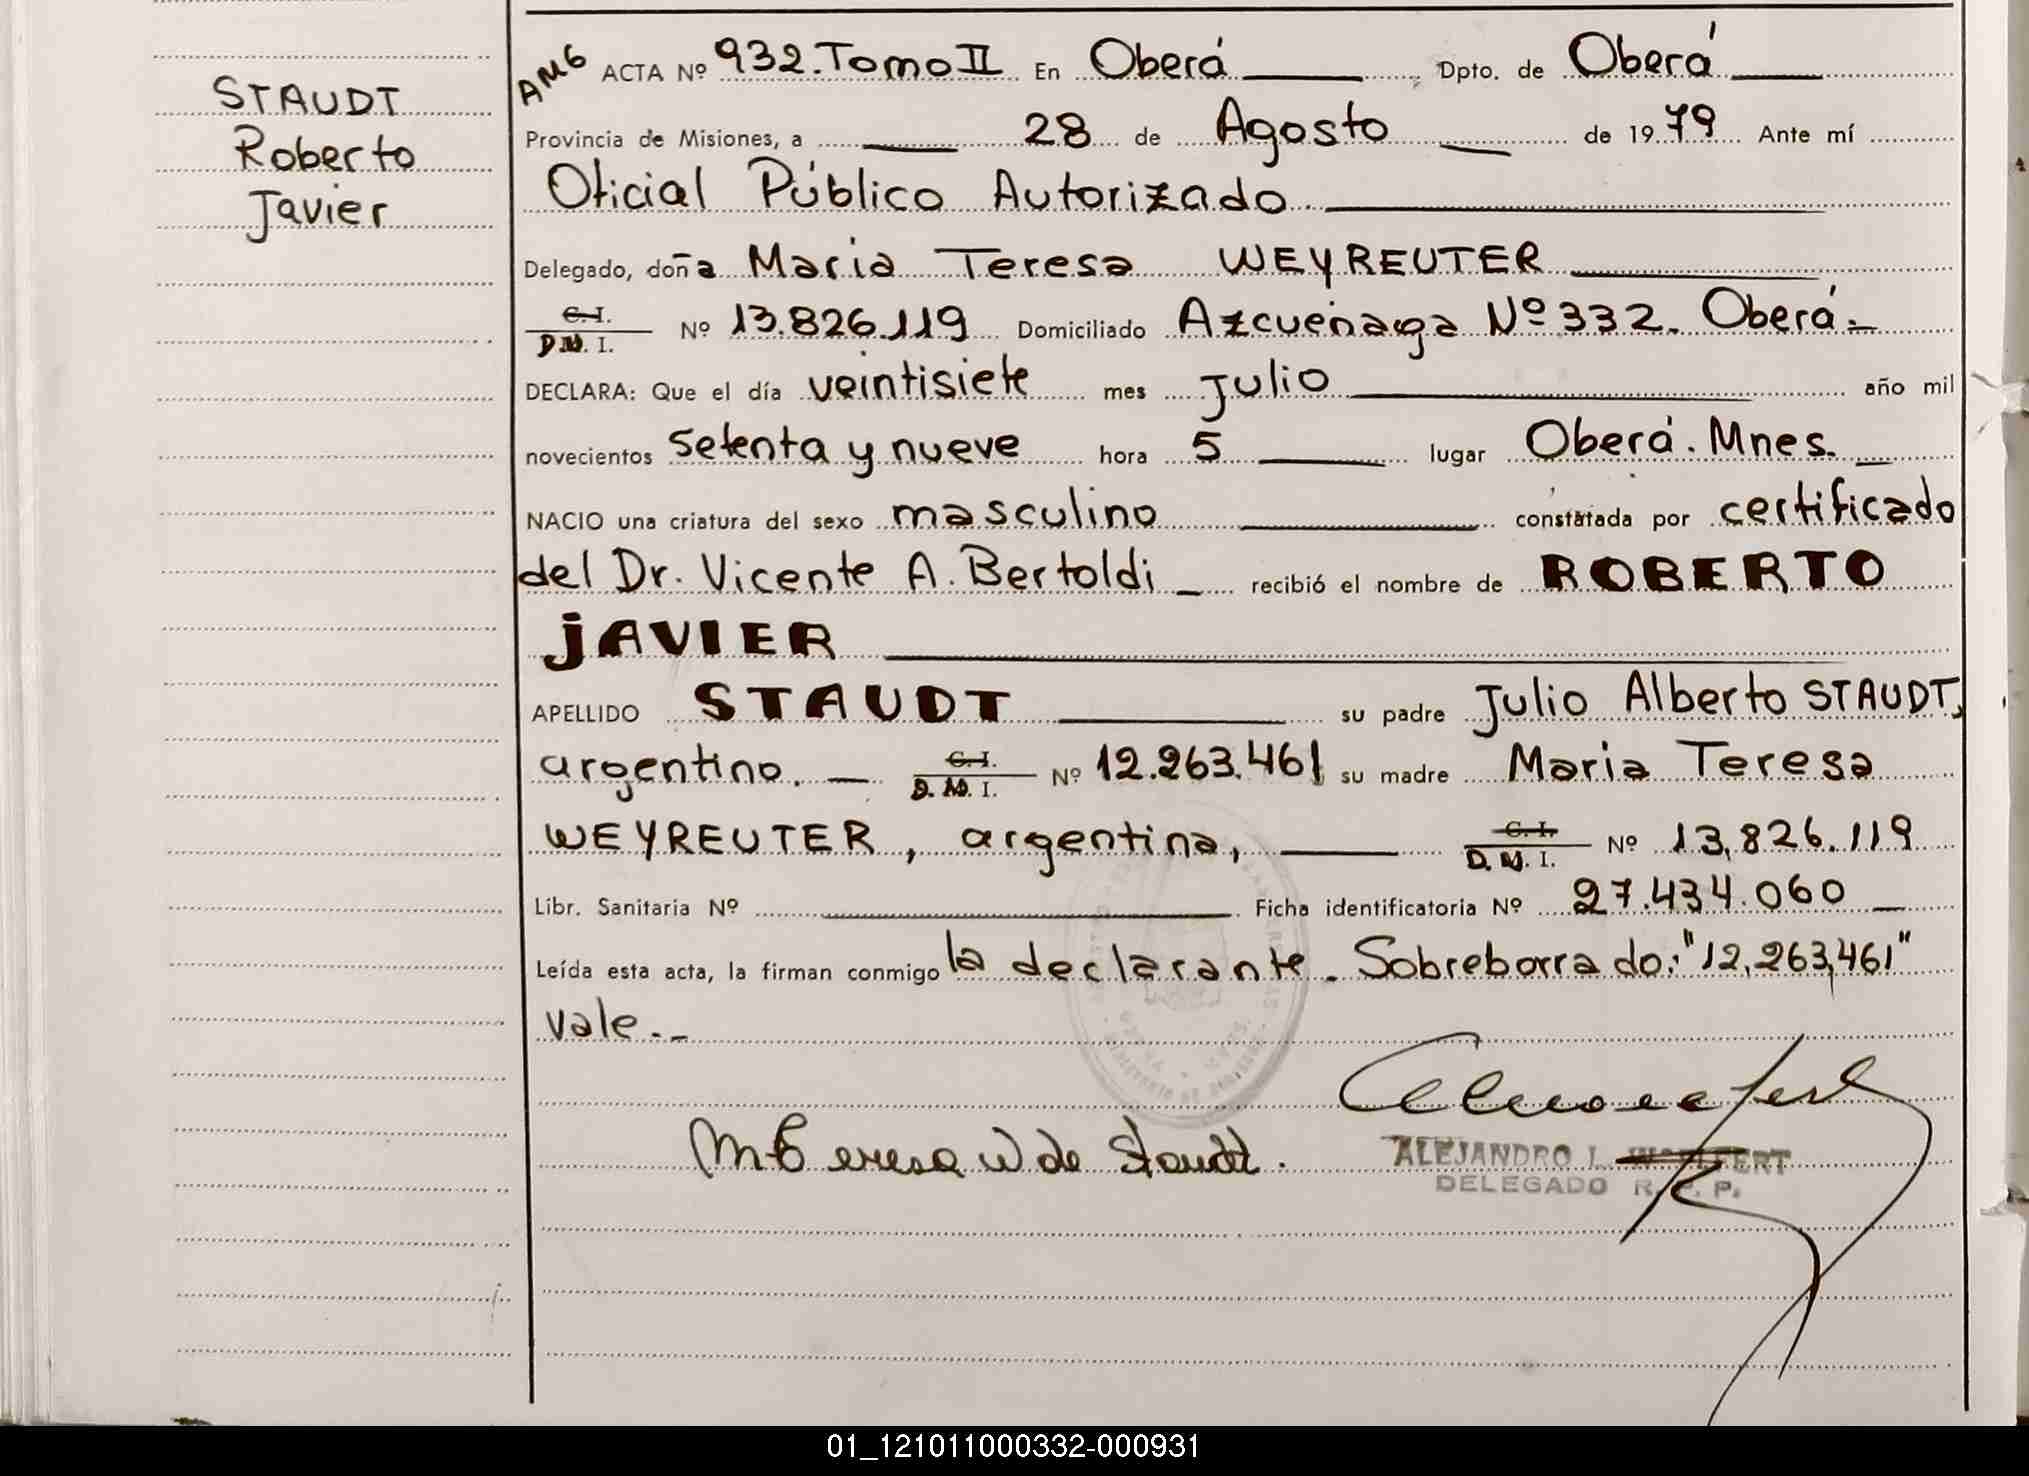 STAUDT
Roberto
Javier
AMG ACTA Nº 932. Tomo II En Oberá Dpto. de Oberá
Provincia de Misiones, a 28 de Agosto de 1979 Ante mí
Oficial Público Autorizado
Delegado, doña Maria Teresa WEYREUTER
C. I.
D.N. I. Nº 13.826.119 Domiciliado Azcuénaga Nº 332. Oberá.-
DECLARA: Que el día veintisiete mes Julio año mil
novecientos setenta y nueve hora 5 lugar Oberá. Mnes.
NACIO una criatura del sexo masculino constatada por certificado
del Dr. Vicente A. Bertoldi recibió el nombre de ROBERTO
JAVIER
APELLIDO STAUDT su padre Julio Alberto STAUDT,
argentino. C. I.
D. N. I. Nº 12.263.461 su madre Maria Teresa
WEYREUTER, argentina, C. I.
D. N. I. Nº 13,826.119
Libr. Sanitaria Nº Ficha identificatoria Nº 27.434.060
Leída esta acta, la firman conmigo la declarante. Sobreborrado: "12,263,461"
vale.-
M Teresa W de Staudt.
ALEJANDRO L.
DELEGADO R. P. P.
01_121011000332-000931